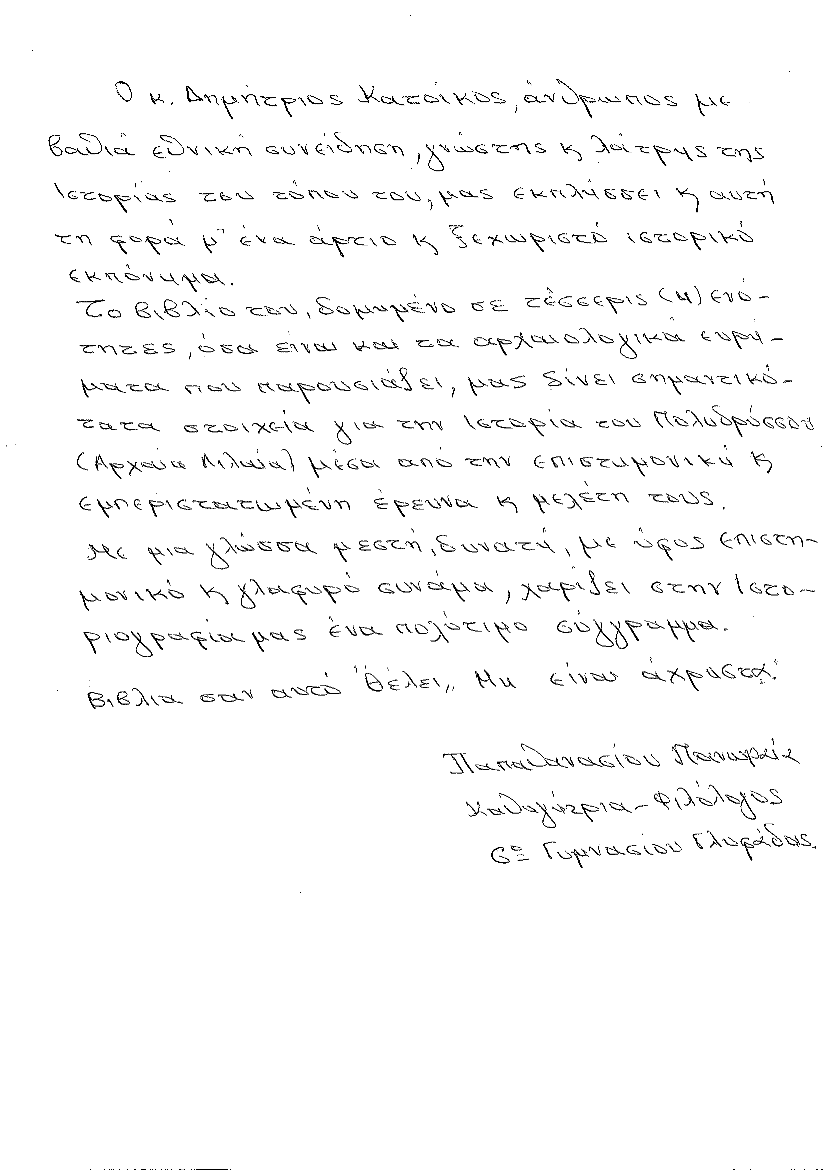 Ο κ. Δημήτριος Κατοίκος, άνθρωπος με
βαθιά εθνική συνείδηση, γνώστης κ λάτρης της
Ιστορίας του τόπου του, μας εκπλήσσει κ αυτή
τη φορά μ' ένα άρτιο κ ξεχωριστό ιστορικό
εκπόνημα.
Το βιβλίο του, δομημένο σε τέσσερις (4) ενό-
τητες, όσα είναι και τα αρχαιολογικά ευρή-
ματα που παρουσιάζει, μας δίνει σημαντικό-
τατα στοιχεία για την Ιστορία του Πολυδρόσου
(Αρχαία Λιλαία) μέσα από την επιστημονική κ
εμπεριστατωμένη έρευνα κ μελέτη τους.
Με μια γλώσσα μεστή, δυνατή, με ύφος επιστη-
μονικό κ γλαφυρό συνάμα, χαρίζει στην Ιστο-
ριογραφία μας ένα πολύτιμο σύγγραμμα.
Βιβλία σαν αυτό "θέλει,, Μη είναι άχραστα!
Παπαθανασίου
Καθηγήτρια - Φιλόλογος
6ο Γυμνασίου Γλυφάδας.